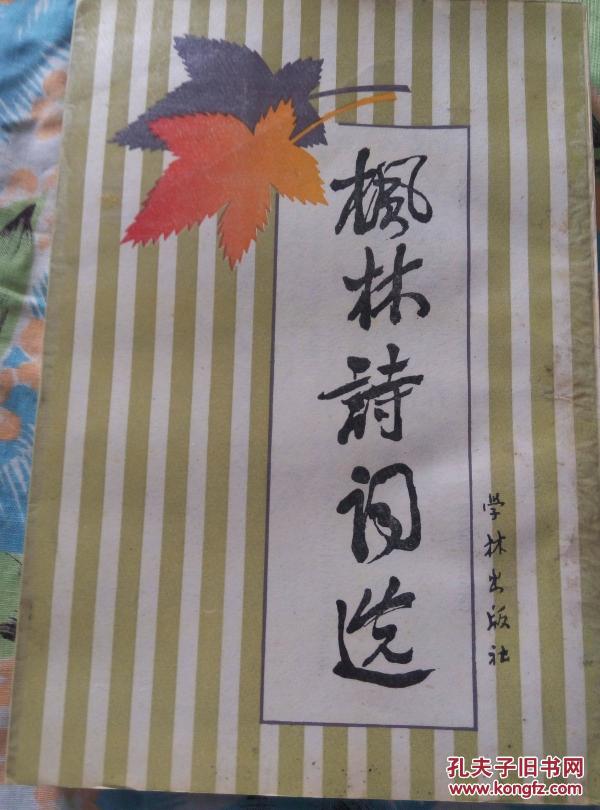 楓林詩词选
学林出版社
孔夫子旧书网
www.kongfz.com